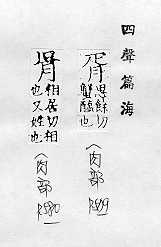 四聲篇海
思餘切
蟹醢也
(肉部
相居切相
也又姓也
(肉部
P.580)